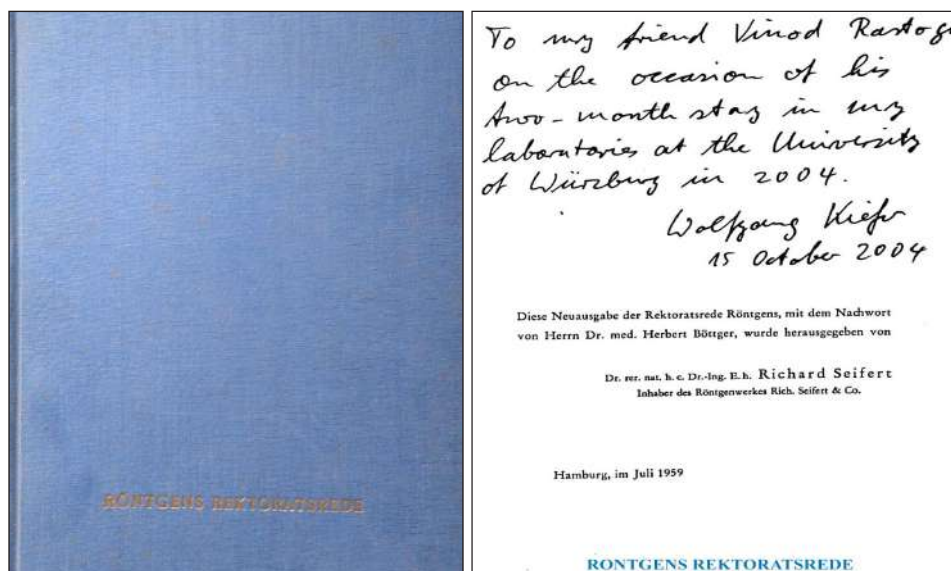 RÖNTGENS REKTORATSREDE
To my friend Vinod Rastog
on the occasion of his
two-month stay in my
laboratories at the University
of Würzburg in 2004.
Wolfgang Kiefer
15 October 2004
Diese Neuausgabe der Rektoratsrede Röntgens, mit dem Nachwort
von Herrn Dr. med. Herbert Böttger, wurde herausgegeben von
Dr. rer. nat. h. c. Dr.-Ing. E. h. Richard Seifert
Inhaber des Röntgenwerkes Rich. Seifert & Co.
Hamburg, im Juli 1959
RONTGENS REKTORATSREDE